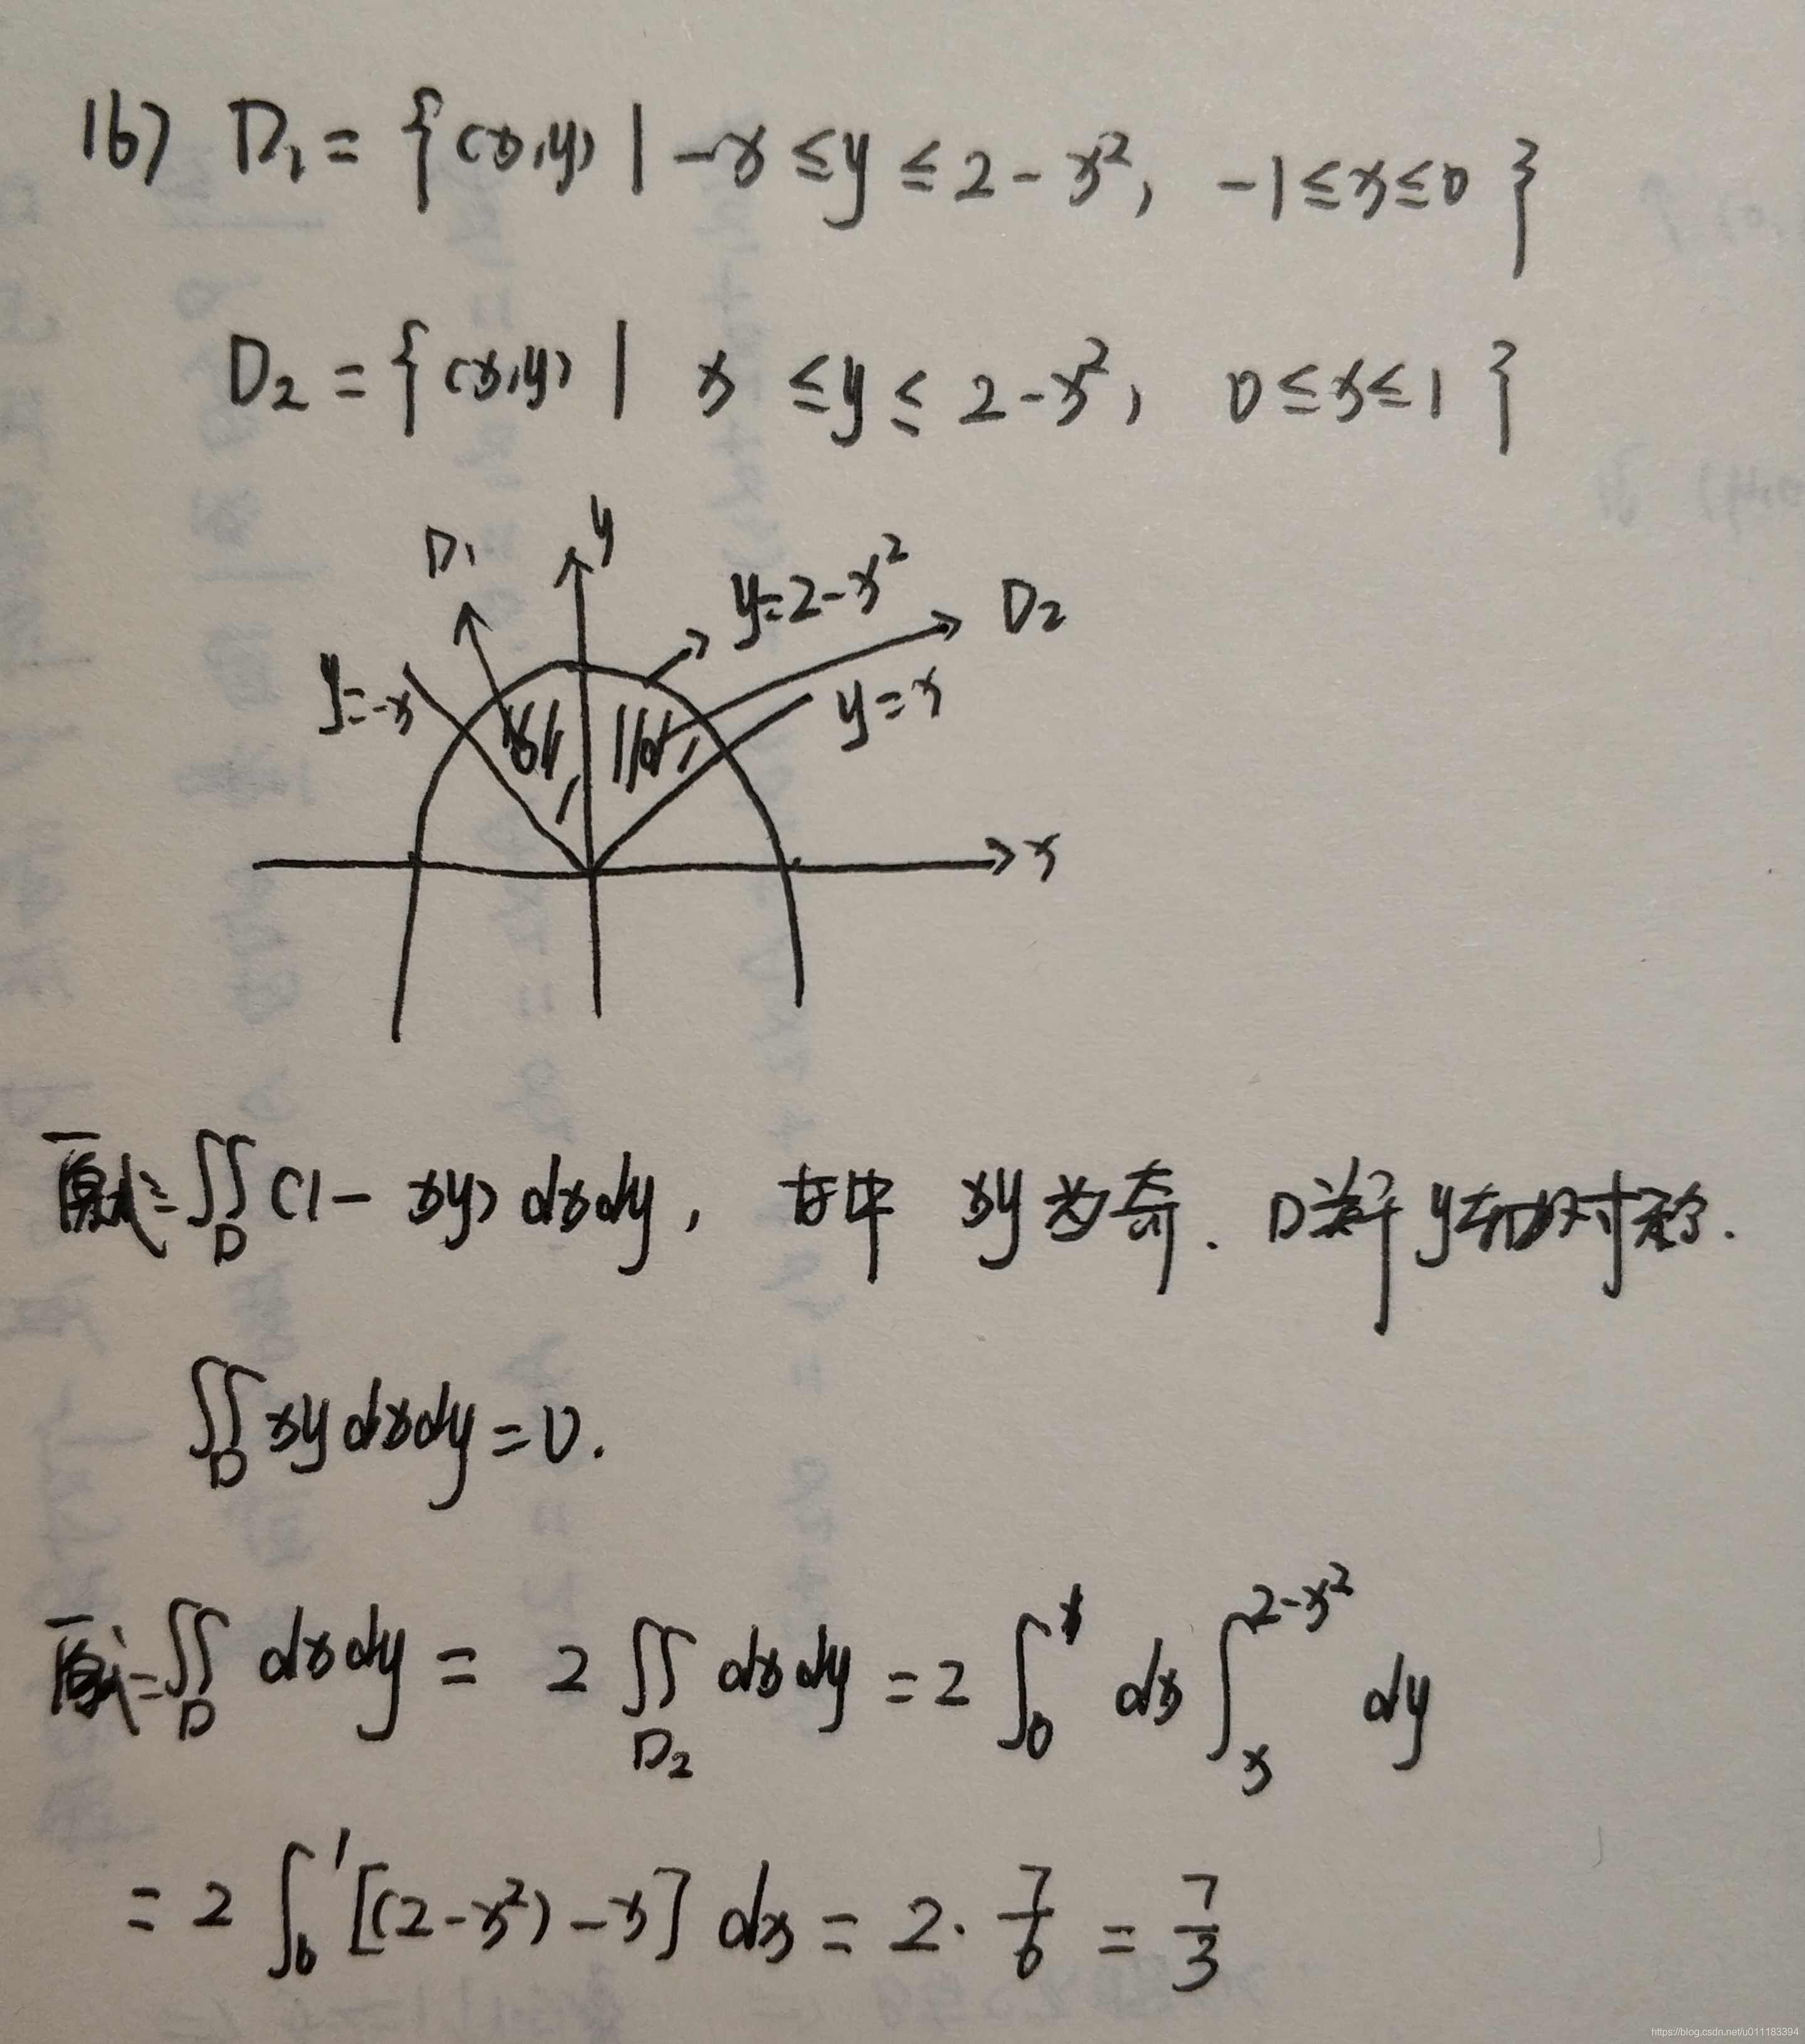 16) D₁ = {(x,y) | -x ≤ y ≤ 2-x², -1 ≤ x ≤ 0}
D₂ = {(x,y) | x ≤ y ≤ 2-x², 0 ≤ x ≤ 1}
y
D₁
y=2-x²
D₂
y=-x
y=x
x
原式=∬_D (1-xy) dxdy, 其中 xy为奇. D关于y轴对称.
∬_D xy dxdy = 0.
原式=∬_D dxdy = 2∬_{D₂} dxdy = 2∫₀ dx ∫_x^{2-x²} dy
= 2∫₀¹ [(2-x²)-x] dx = 2·7/6 = 7/3
https://blog.csdn.net/u011183394